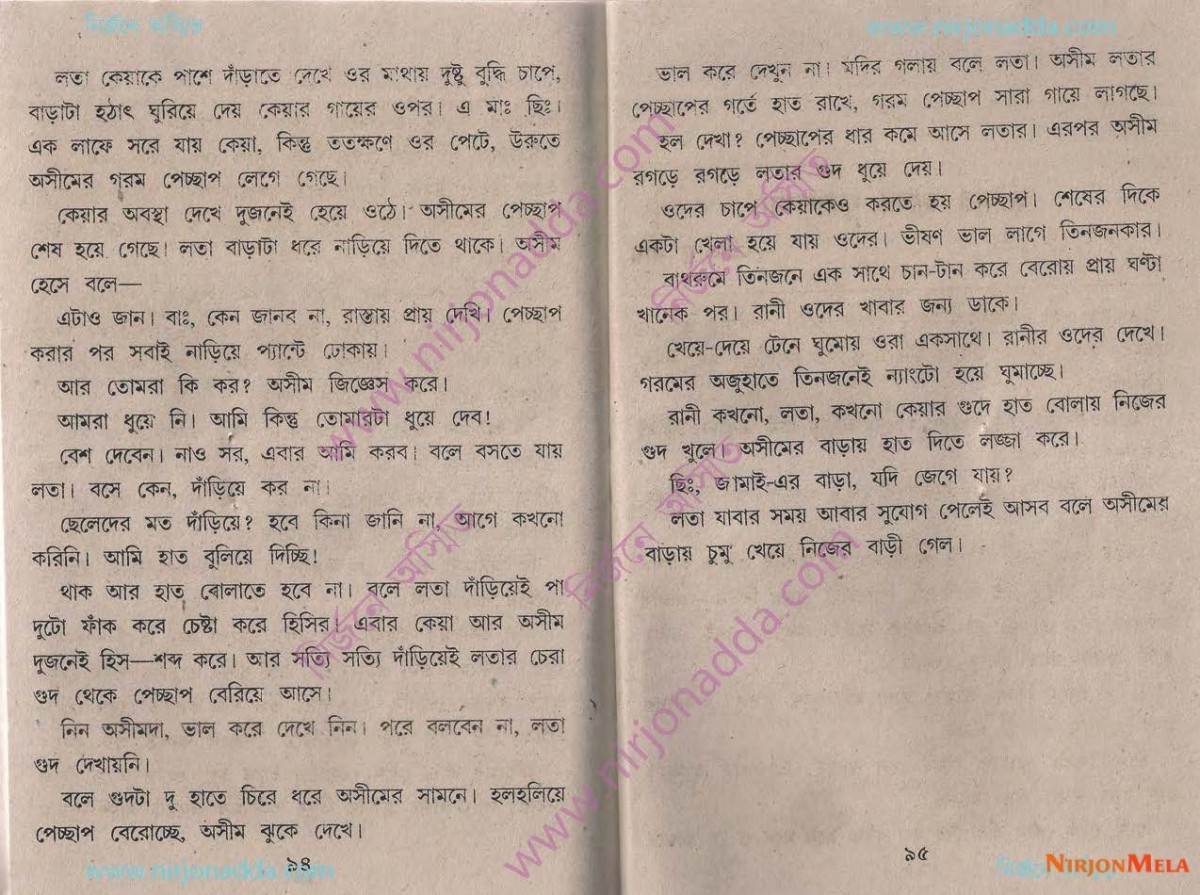 নির্জনে অস্মিত
www.nirjonadda.com
লতা কেয়াকে পাশে দাঁড়াতে দেখে ওর মাথায় দুষ্টু বুদ্ধি চাপে,
বাড়াটা হঠাৎ ঘুরিয়ে দেয় কেয়ার গায়ের ওপর। এ মাঃ ছিঃ।
এক লাফে সরে যায় কেয়া, কিন্তু ততক্ষণে ওর পেটে, উরুতে
অসীমের গরম পেচ্ছাপ লেগে গেছে।
কেয়ার অবস্থা দেখে দুজনেই হেয়ে ওঠে। অসীমের পেচ্ছাপ
শেষ হয়ে গেছে। লতা বাড়াটা ধরে নাড়িয়ে দিতে থাকে। অসীম
হেসে বলে—
এটাও জান। বাঃ, কেন জানব না, রাস্তায় প্রায় দেখি। পেচ্ছাপ
করার পর সবাই নাড়িয়ে প্যান্টে ঢোকায়।
আর তোমরা কি কর? অসীম জিজ্ঞেস করে।
আমরা ধুয়ে নি। আমি কিন্তু তোমারটা ধুয়ে দেব!
বেশ দেবেন। নাও সর, এবার আমি করব। বলে বসতে যায়
লতা। বসে কেন, দাঁড়িয়ে কর না।
ছেলেদের মত দাঁড়িয়ে? হবে কিনা জানি না, আগে কখনো
করিনি। আমি হাত বুলিয়ে দিচ্ছি!
থাক আর হাত বোলাতে হবে না। বলে লতা দাঁড়িয়েই পা
দুটো ফাঁক করে চেষ্টা করে হিসির। এবার কেয়া আর অসীম
দুজনেই হিস—শব্দ করে। আর সত্যি সত্যি দাঁড়িয়েই লতার চেরা
গুদ থেকে পেচ্ছাপ বেরিয়ে আসে।
নিন অসীমদা, ভাল করে দেখে নিন। পরে বলবেন না, লতা
গুদ দেখায়নি।
বলে গুদটা দু হাতে চিরে ধরে অসীমের সামনে। হলহলিয়ে
পেচ্ছাপ বেরোচ্ছে, অসীম ঝুকে দেখে।
৯৪
www.nirjonadda.com
ভাল করে দেখুন না। মদির গলায় বলে লতা। অসীম লতার
পেচ্ছাপের গর্তে হাত রাখে, গরম পেচ্ছাপ সারা গায়ে লাগছে।
হল দেখা? পেচ্ছাপের ধার কমে আসে লতার। এরপর অসীম
রগড়ে রগড়ে লতার গুদ ধুয়ে দেয়।
ওদের চাপে কেয়াকেও করতে হয় পেচ্ছাপ। শেষের দিকে
একটা খেলা হয়ে যায় ওদের। ভীষণ ভাল লাগে তিনজনকার।
বাথরুমে তিনজনে এক সাথে চান-টান করে বেরোয় প্রায় ঘণ্টা
খানেক পর। রানী ওদের খাবার জন্য ডাকে।
খেয়ে-দেয়ে টেনে ঘুমোয় ওরা একসাথে। রানীর ওদের দেখে।
গরমের অজুহাতে তিনজনেই ন্যাংটো হয়ে ঘুমাচ্ছে।
রানী কখনো, লতা, কখনো কেয়ার গুদে হাত বোলায় নিজের
গুদ খুলে। অসীমের বাড়ায় হাত দিতে লজ্জা করে।
ছিঃ, জামাই-এর বাড়া, যদি জেগে যায়?
লতা যাবার সময় আবার সুযোগ পেলেই আসব বলে অসীমের
বাড়ায় চুমু খেয়ে নিজের বাড়ী গেল।
৯৫
www.nirjonadda.com
নির্জনে অস্মিত
www.nirjonadda.com
নির্জনে অস্মিত
নির্জনে অস্মিত
NIRJONMELA